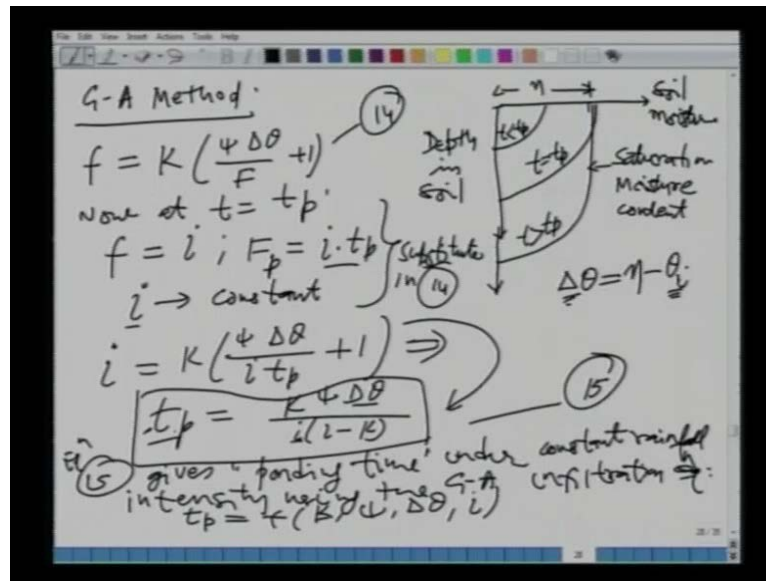 File Edit View Insert Actions Tools Help
G-A Method.
14
f = K(ψ Δθ / F + 1)
Now at t = tp.
f = i ; Fp = i.tp
i → constant
Substitute
in 14
i = K(ψ Δθ / i tp + 1) ⇒
tp = K ψ Δθ / i(i-K)
15
Eqn 15 gives "ponding time" under constant rainfall
intensity using the G-A infiltration eq:
tp = f(K, ψ, Δθ, i)
η
Soil
moisture
Depth
in
soil
t<tp
t=tp
t>tp
Saturation
Moisture
content
Δθ = η - θi
28/35
28